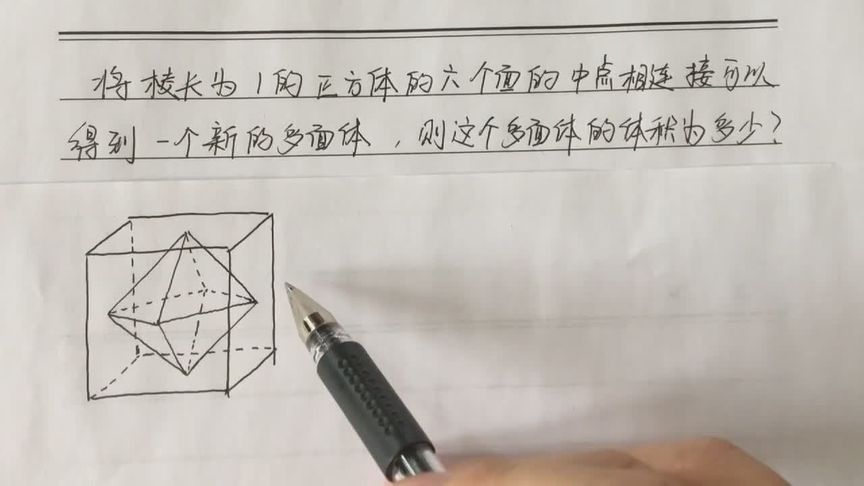 将棱长为1的正方体的六个面的中点相连接可以
得到一个新的多面体，则这个多面体的体积为多少？